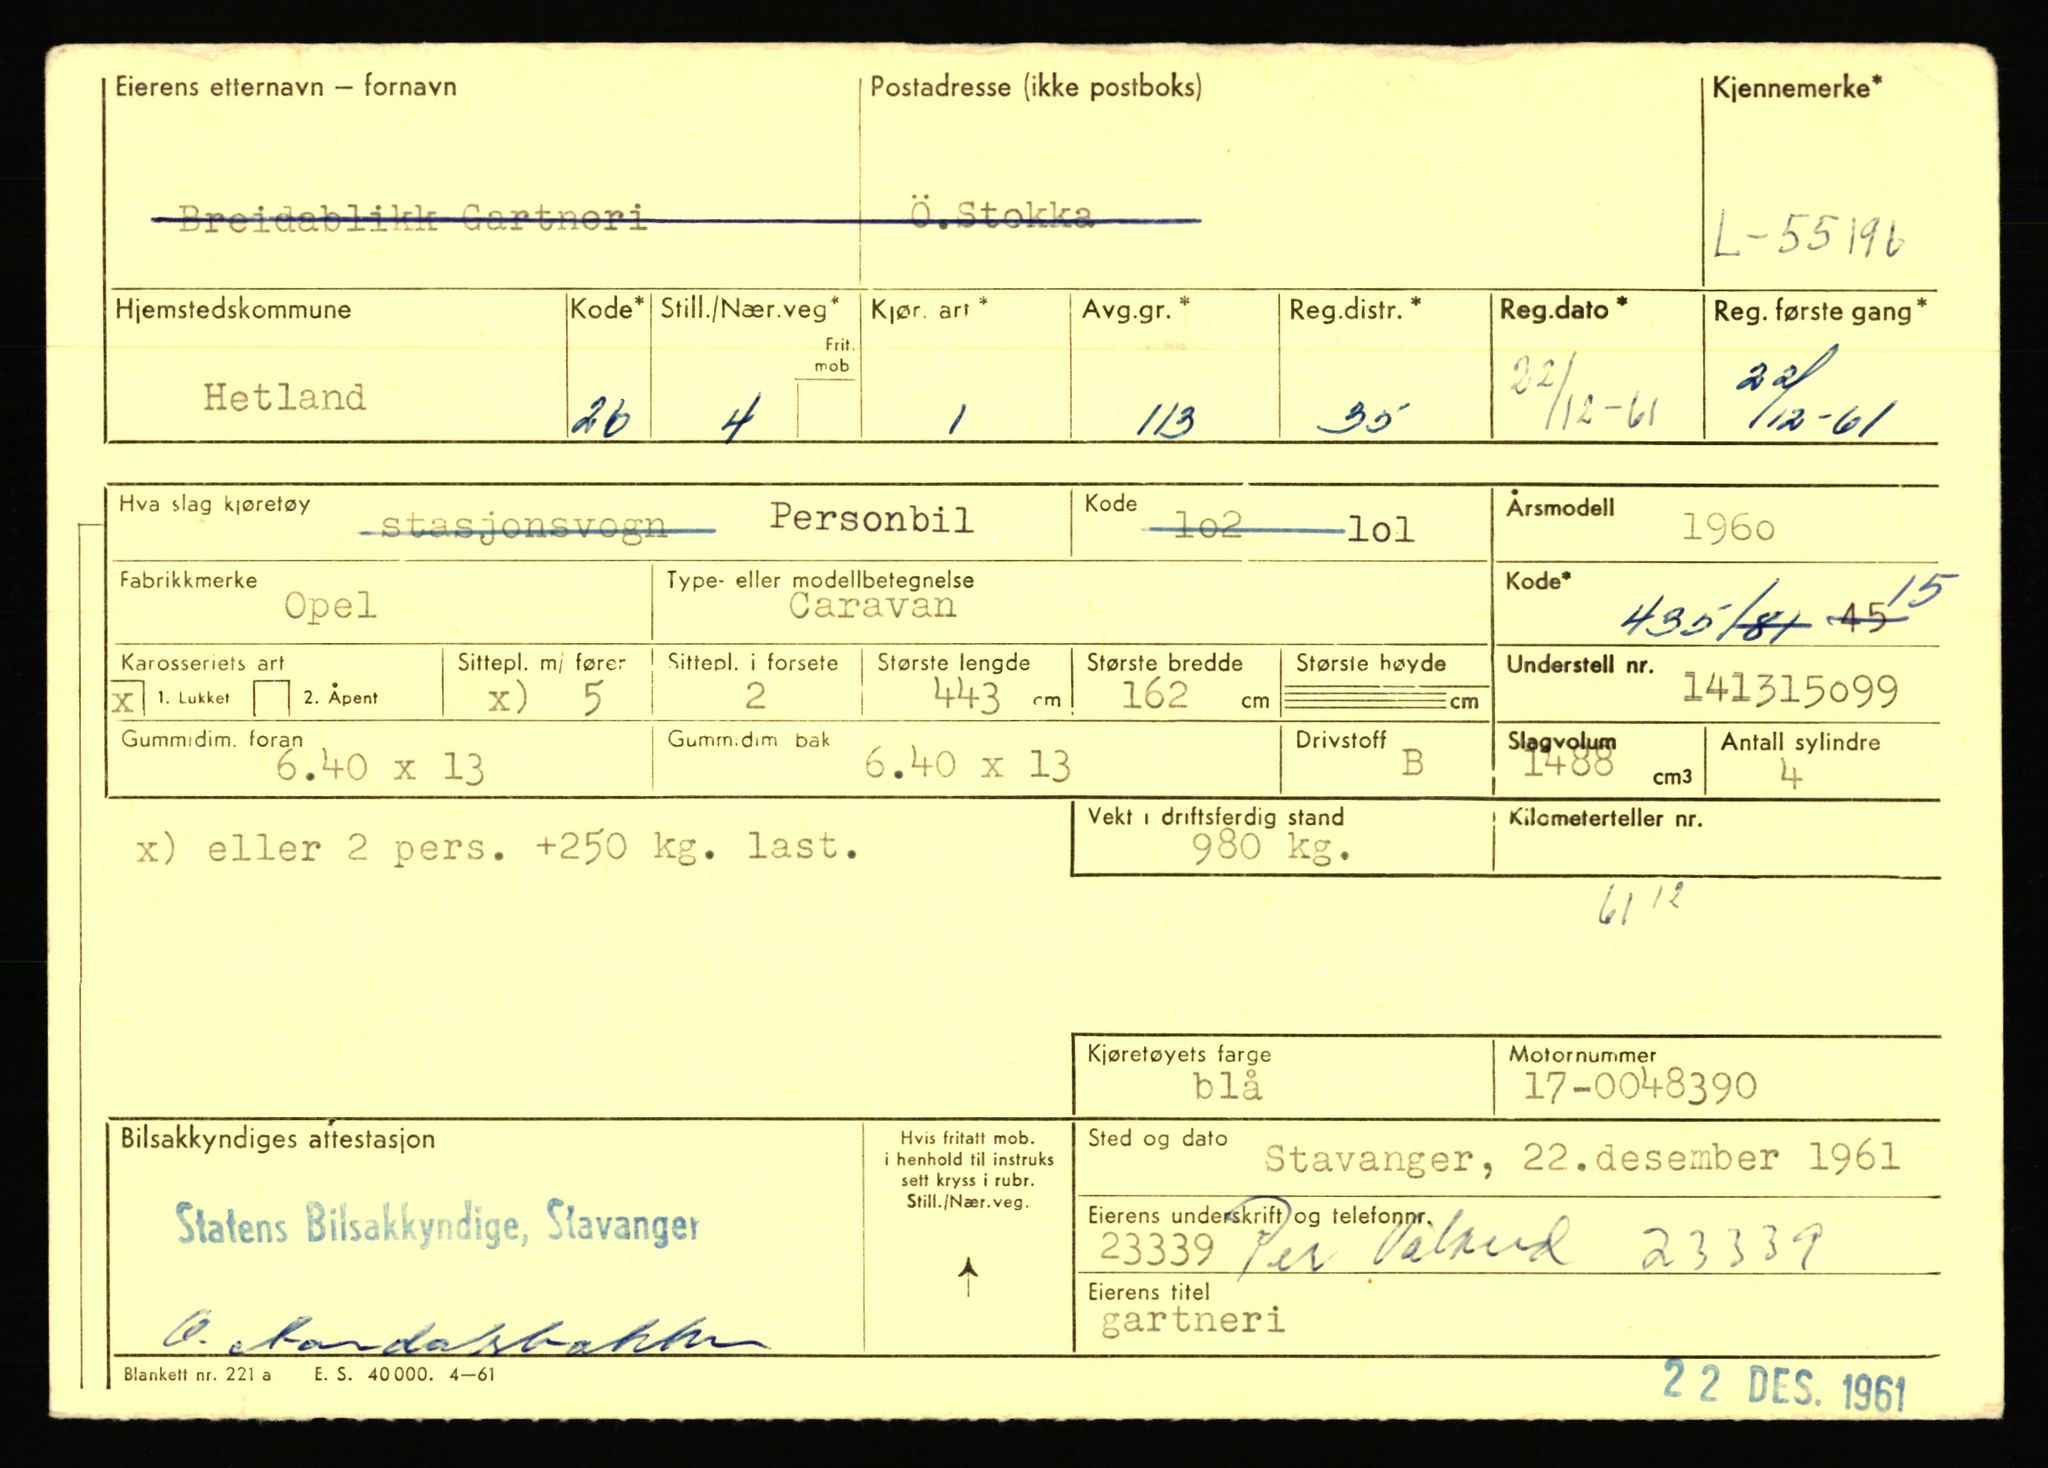 Eierens etternavn – fornavn Postadresse (ikke postboks) Kjennemerke*
Breidablikk Gartneri Ö.Stokka L-55196
Hjemstedskommune Kode* Still./Nær.veg* Kjør. art* Avg.gr.* Reg.distr.* Reg.dato* Reg. første gang*
Frit.
mob
Hetland 26 4 1 113 35 22/12-61 22/12-61
Hva slag kjøretøy Kode Årsmodell
stasjonsvogn Personbil lo2 lol 196o
Fabrikkmerke Type- eller modellbetegnelse Kode*
Opel Caravan 435/81 45 15
Karosseriets art Sittepl. m/ fører Sittepl. i forsete Største lengde Største bredde Største høyde Understell nr.
x 1. Lukket 2. Åpent x) 5 2 443 cm 162 cm cm 141315o99
Gummidim. foran Gummidim bak Drivstoff Slagvolum Antall sylindre
6.40 x 13 6.40 x 13 B 1488 cm3 4
Vekt i driftsferdig stand Kilometerteller nr.
x) eller 2 pers. +250 kg. last. 980 kg.
61 12
Kjøretøyets farge Motornummer
blå 17-0048390
Bilsakkyndiges attestasjon
Hvis fritatt mob.
i henhold til instruks
sett kryss i rubr.
Still./Nær.veg.
Sted og dato
Stavanger, 22.desember 1961
Statens Bilsakkyndige, Stavanger
Eierens underskrift og telefonnr.
23339 Per 23339
Eierens titel
gartneri
O.
Blankett nr. 221 a E. S. 40 000. 4–61
22 DES. 1961